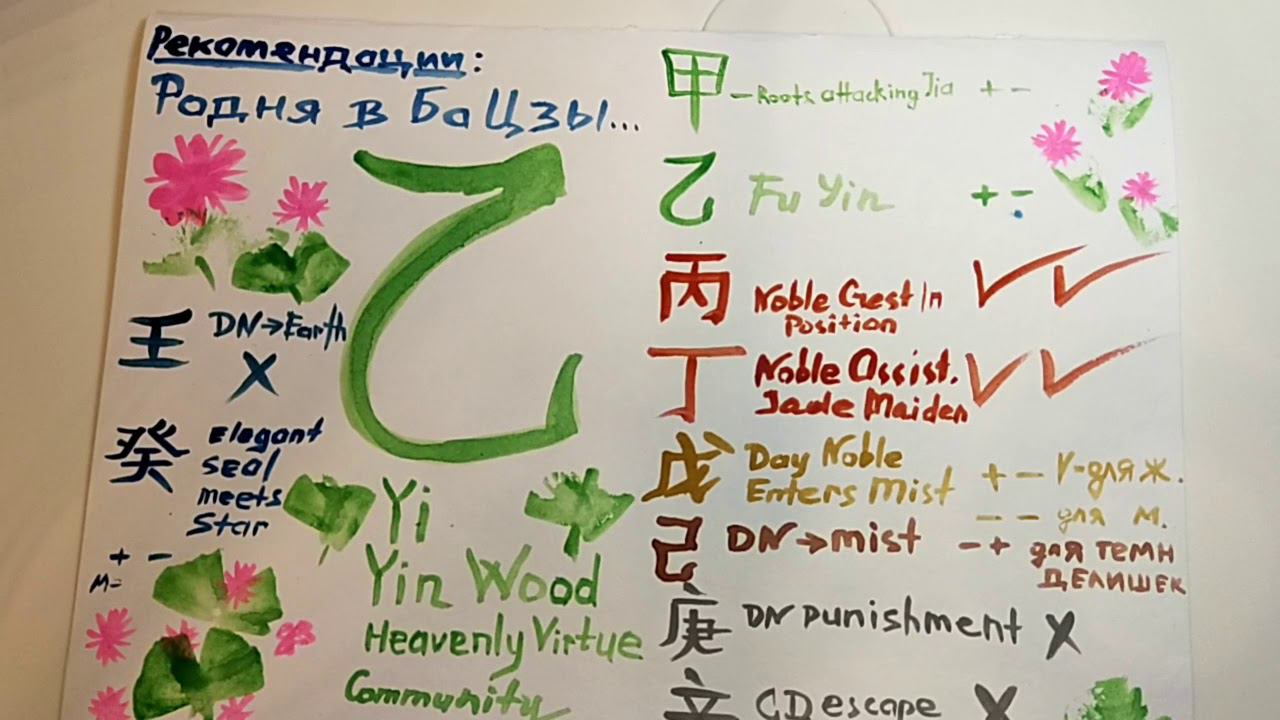 Рекомендации:
Родня в БаЦзы...
乙
壬 DN→Earth
X
癸 Elegant
seal
meets
Star
+ -
М=
Yi
Yin Wood
Heavenly Virtue
Community
甲 - Roots attacking Jia + -
乙 Fu Yin + -
丙 Noble Crest In
Position ✓✓
丁 Noble Assist.
Jade Maiden ✓✓
戊 Day Noble
Enters Mist + - V-для ж.
- - для м.
己 DN→mist -+ для темн
делишек
庚 DN punishment X
辛 GD escape X